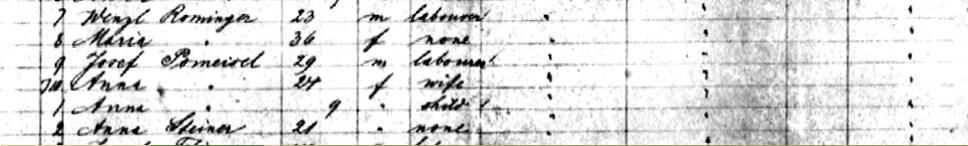 7 Wenzl Rominger 23 m labourer
8 Maria " 36 f none
9 Josef Pomeisel 29 m labourer
Anna " 24 f wife
1 Anna " 9 " child
2 Anna Steiner 21 " none